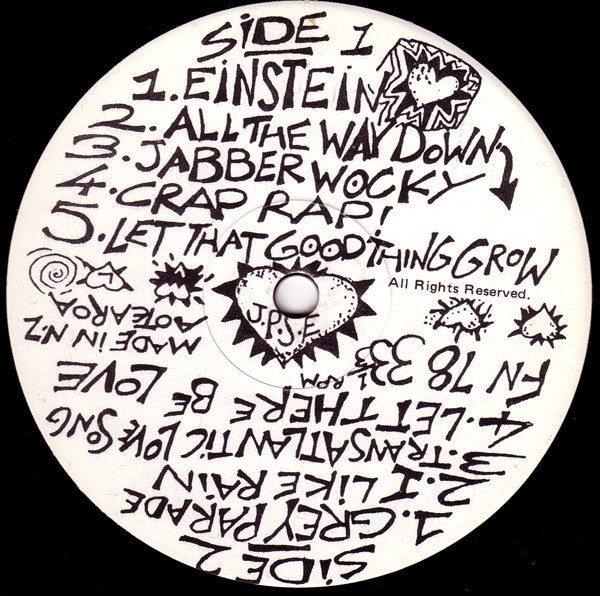 SiDE 1
1. EiNSTEiN
2. ALL THE WAY DOWN.
3. JABBERWOCKY
4. CRAP RAP!
5. LET THAT GOOD THING GROW
All Rights Reserved.
J.P.S.E
SiDE 2
1. GREY PARADE
2. I LiKE RAiN
3. TRANSATLANTiC LOVE SONG
4. LET THERE BE LOVE
FN 78 33⅓ RPM
MADE iN NZ
AOTEAROA